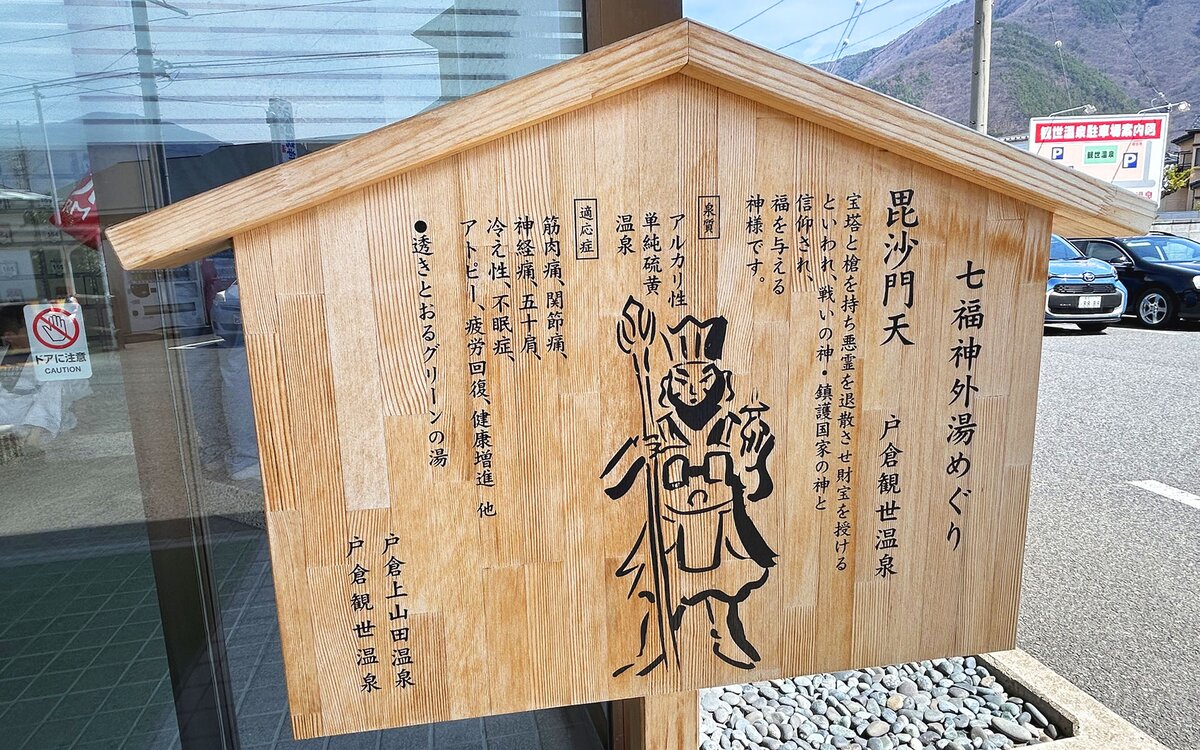 七福神外湯めぐり
毘沙門天 戸倉観世温泉
宝塔と槍を持ち悪霊を退散させ財宝を授ける
といわれ、戦いの神・鎮護国家の神と
信仰され、
福を与える
神様です。
泉質
アルカリ性
単純硫黄
温泉
適応症
筋肉痛、関節痛、
神経痛、五十肩、
冷え性、不眠症、
アトピー、疲労回復、健康増進 他
●透きとおるグリーンの湯
戸倉上山田温泉
戸倉観世温泉
観世温泉駐車場案内図
P
観世温泉
P
ドアに注意
CAUTION